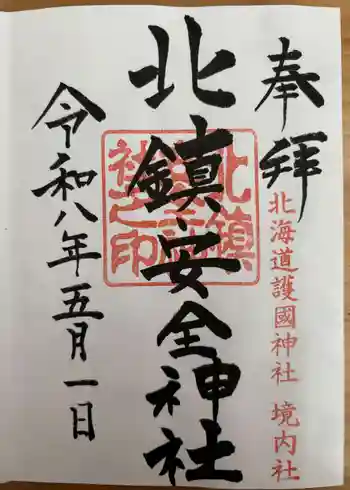 奉拝
北海道護國神社 境内社
北鎮安全神社
北鎮安全神社之印
令和八年五月一日